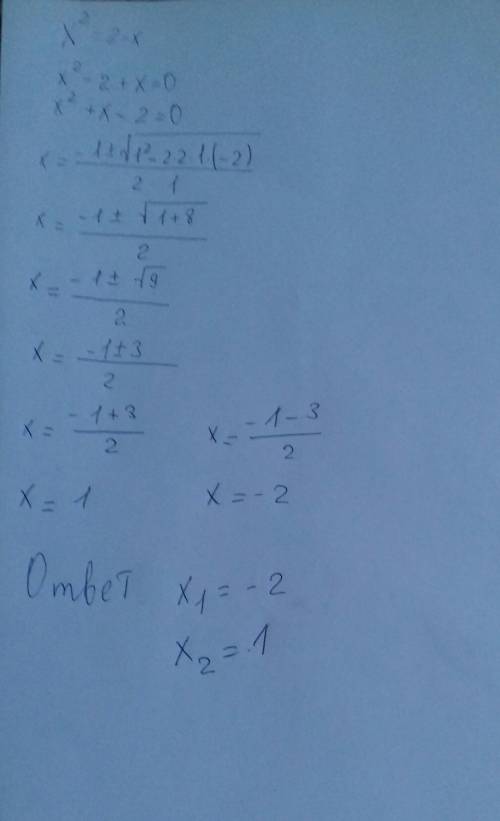 x² = 2 - x
x² - 2 + x = 0
x² + x - 2 = 0
x = (-1 ± √(1² - 2 2 · 1 · (-2))) / (2 1)
x = (-1 ± √(1 + 8)) / 2
x = (-1 ± √9) / 2
x = (-1 ± 3) / 2
x = (-1 + 3) / 2 x = (-1 - 3) / 2
x = 1 x = -2
Ответ x₁ = -2
x₂ = 1